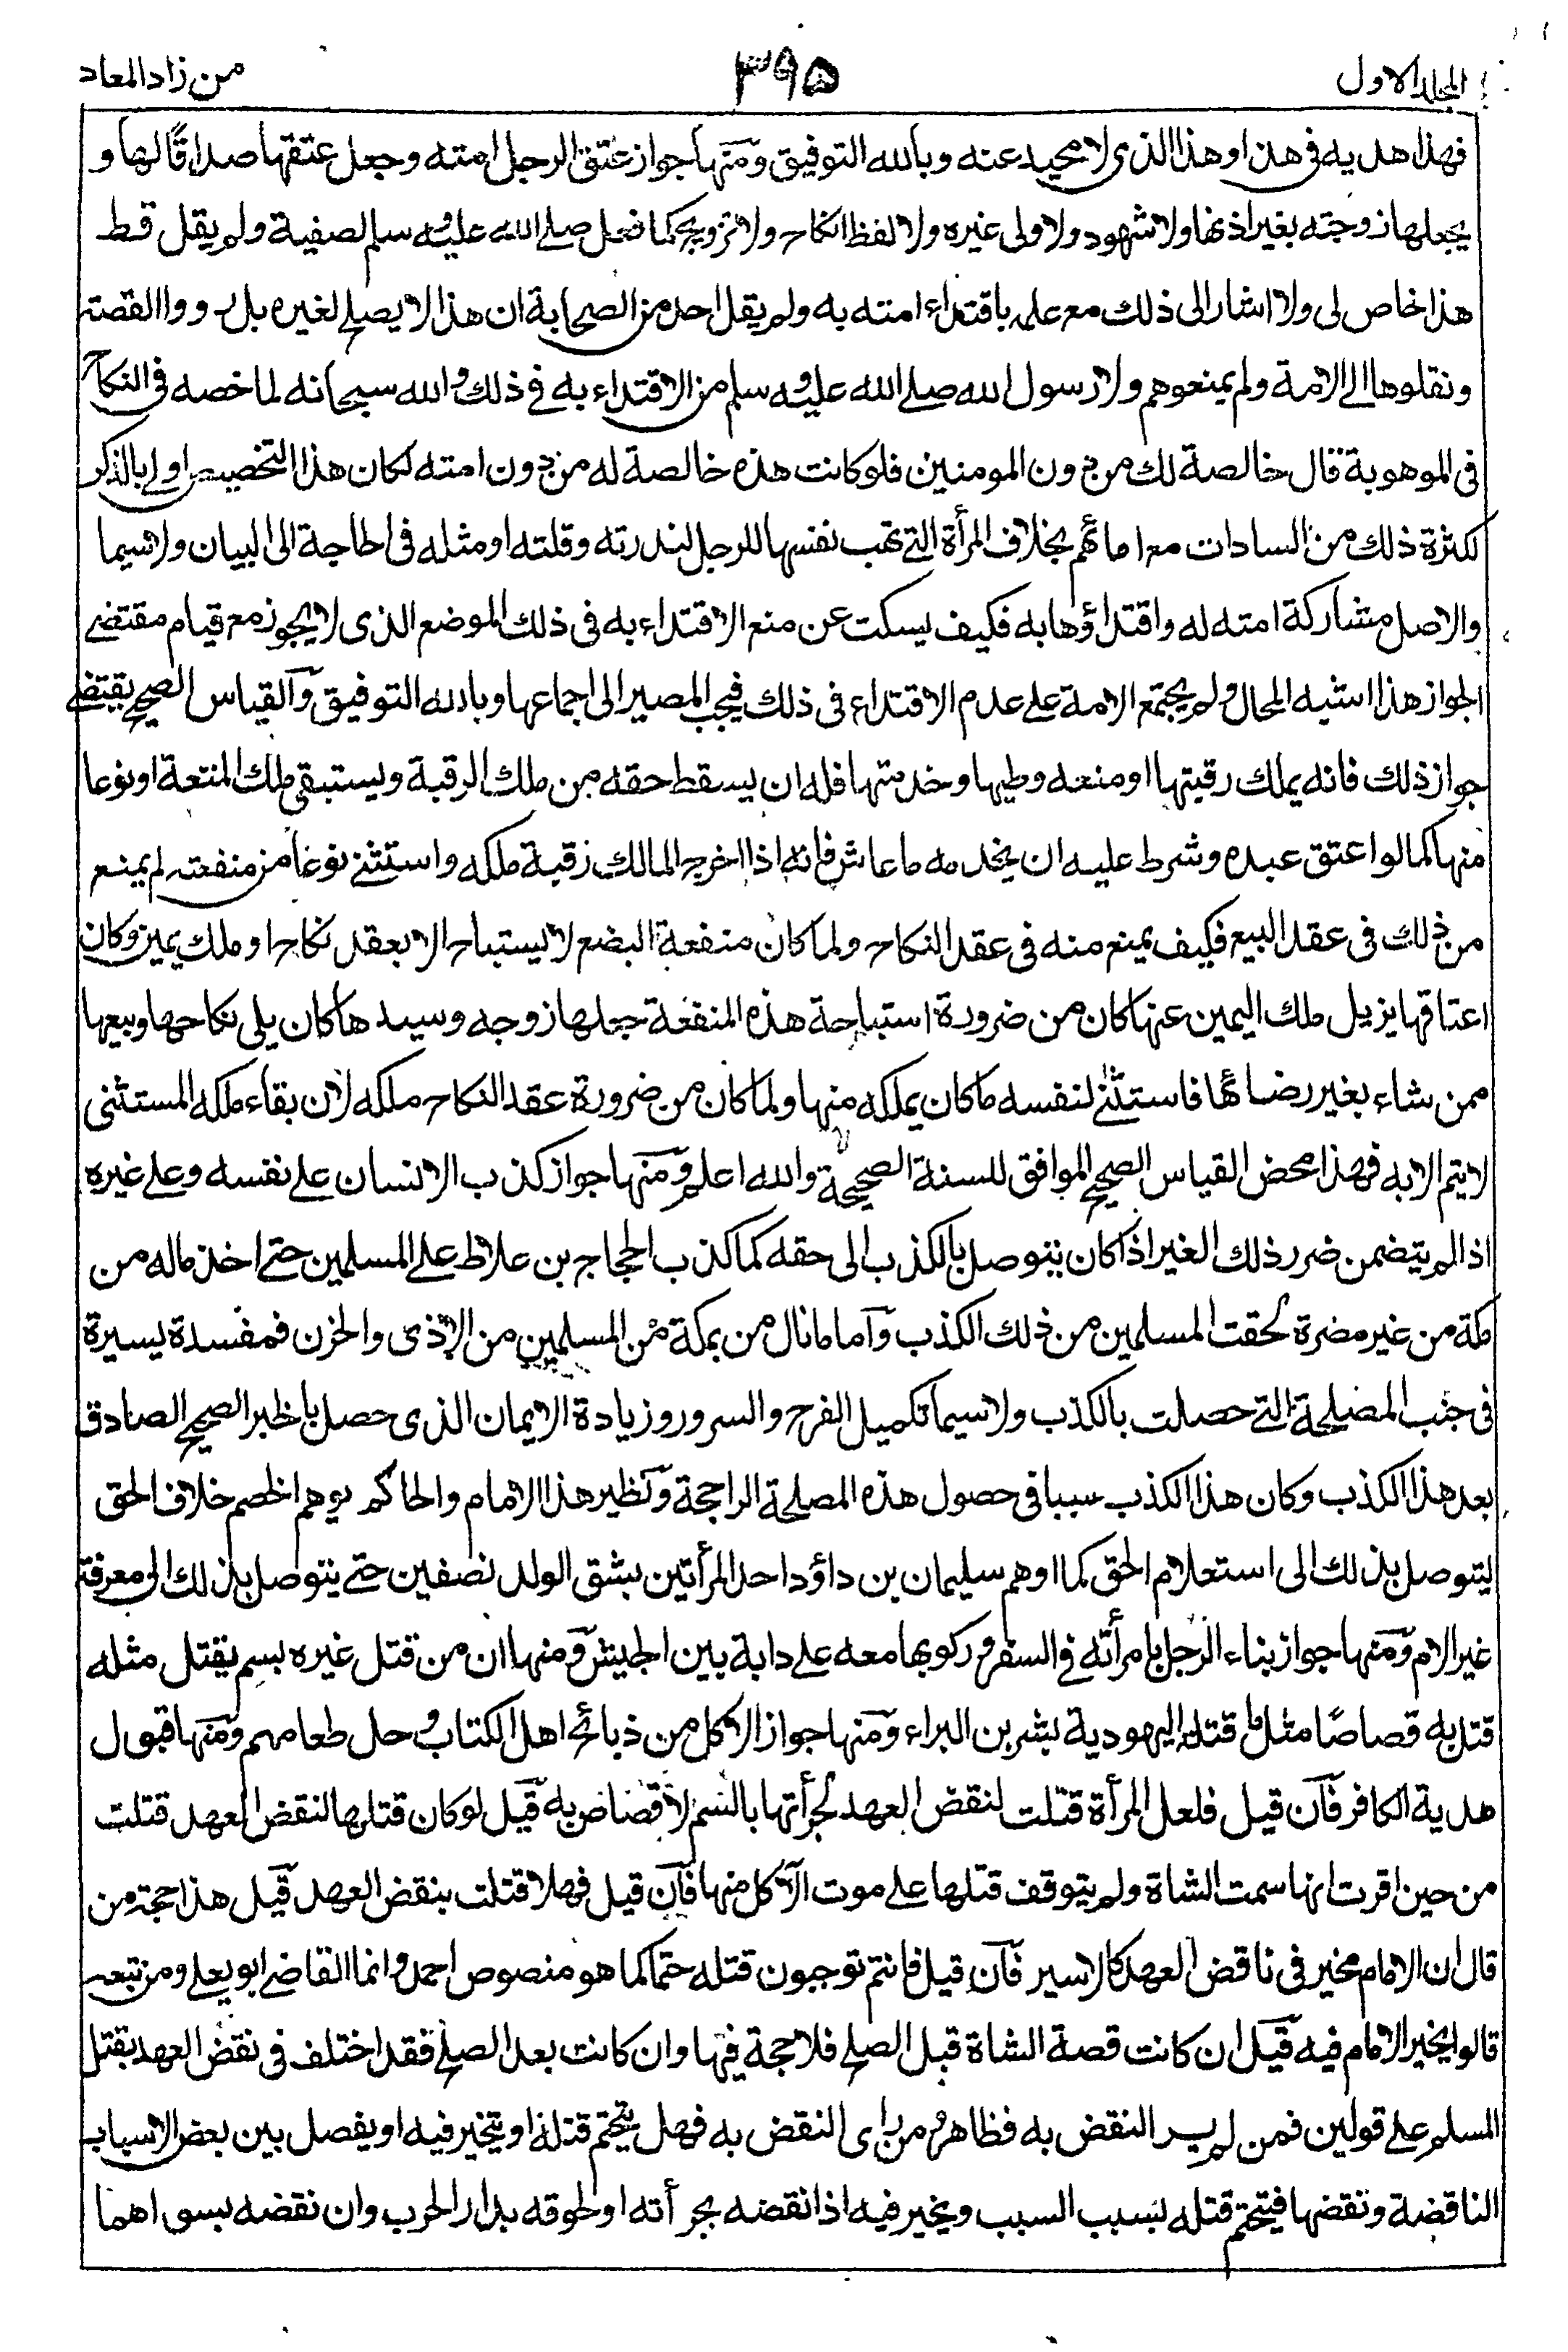 المجلد الاول
۳۹۵
من زاد المعاد
فهذا هديه فى هذا وهذا الذى لا محيد عنه وبالله التوفيق ومنها جواز عتق الرجل امته وجعل عتقها صداقًا لها و
يجعلها زوجته بغير اذنها ولا شهود ولا ولى غيره ولا لفظ انكاح ولا تزويج كما فعل صلے الله عليه وسلم لصفية ولم يقل قط
هذا خاص لى ولا اشار الى ذلك مع علمه باقتداء امته به ولم يقل احد من الصحابة ان هذا لا يصلح لغيره بل رووا القصة
ونقلوها الے الامة ولم يمنعوهم ولا رسول الله صلے الله عليه وسلم من الاقتداء به فے ذلك والله سبحانه لما خصه فى النكاح
فى الموهوبة قال خالصة لك من دون المومنين فلو كانت هذه خالصة له من دون امته لكان هذا التخصيص اولے بالذكر
لكثرة ذلك من السادات مع امائهم بخلاف المرأة التے تهب نفسها للرجل لندرته وقلته او مثله فى الحاجة الى البيان ولاسيما
والاصل مشاركة امته له واقتداؤها به فكيف يسكت عن منع الاقتداء به فى ذلك الموضع الذى لا يجوز مع قيام مقتضے
الجواز هذا شبه المحال ولم يجتمع الامة علے عدم الاقتداء فى ذلك فيجب المصير الى اجماعها وبالله التوفيق والقياس الصحيح يقتضے
جواز ذلك فانه يملك رقبتها او منعه وطيها وخدمتها فله ان يسقط حقه من ملك الرقبة ويستبقى ملك المنتعة او نوعا
منها كما لو اعتق عبده وشرط عليه ان يخدمه ما عاش فانه اذا اخرج المالك رقبة ملكه واستثنے نوعا من منفعته لم يمنع
من ذلك فى عقد البيع فكيف يمنع منه فى عقد النكاح ولما كان منفعة البضع لا يستباح الا بعقد نكاح او ملك يمين وكان
اعتاقها يزيل ملك اليمين عنها كان من ضرورة استباحة هذه المنفعة جعلها زوجه وسيدها كان يلى نكاحها وبيعها
ممن شاء بغير رضائها فاستثنے لنفسه ما كان يملكه منها ولما كان من ضرورة عقد النكاح ملكه لان بقاء ملكه المستثنى
لا يتم الا به فهذا محض القياس الصحيح الموافق للسنة الصحيحة والله اعلم ومنها جواز كذب الانسان علے نفسه وعلے غيره
اذا لم يتضمن ضرر ذلك الغير اذا كان يتوصل بالكذب الى حقه كما كذب الحجاج بن علاط علے المسلمين حتے اخذ ماله من
مكة من غير مضرة لحقت المسلمين من ذلك الكذب واما ما نال من بمكة من المسلمين من الاذى والحزن فمفسدة يسيرة
فى جنب المصلحة التے حصلت بالكذب ولاسيما تكميل الفرح والسرور وزيادة الايمان الذى حصل بالخبر الصحيح الصادق
بعد هذا الكذب وكان هذا الكذب سببا فى حصول هذه المصلحة الراجحة ونظير هذا الامام والحاكم يوهم الخصم خلاف الحق
ليتوصل بذلك الى استعلام الحق كما اوهم سليمان بن داؤد احد المرأتين بشق الولد نصفين حتے يتوصل بذلك الى معرفة
غير الام ومنها جواز بناء الرجل بامرأته فے السفر وركوبها معه علے دابة بين الجيش ومنها ان من قتل غيره بسم يقتل مثله
قتل به قصاصًا مثل ما قتلت اليهودية بشر بن البراء ومنها جواز الاكل من ذبائح اهل الكتاب وحل طعامهم ومنها قبول
هدية الكافر فآن قيل فلعل المرأة قتلت لنقض العهد لجرأتها بالسم لا قصاص به قيل لو كان قتلها لنقض العهد قتلت
من حين اقرت انها سمت الشاة ولم يتوقف قتلها علے موت الآكل منها فآن قيل فهلا قتلت بنقض العهد قيل هذا حجة من
قال ان الامام مخير فى ناقض العهد كالاسير فآن قيل فانتم توجبون قتله حتما كما هو منصوص احمد وانما القاضے ابو يعلے ومن تبعه
قالوا يخير الامام فيه قيل ان كانت قصة الشاة قبل الصلح فلا حجة فيها وان كانت بعد الصلح فقد اختلف فى نقض العهد بقتل
المسلم علے قولين فمن لم ير النقض به فظاهر ومن راى النقض به فهل يتحتم قتله او يتخير فيه او يفصل بين بعض الاسباب
الناقضة ونقضها فيتحتم قتله بسبب السبب ويخير فيه اذا نقضه بجرأته او لحوقه بدار الحرب وان نقضه بسواهما